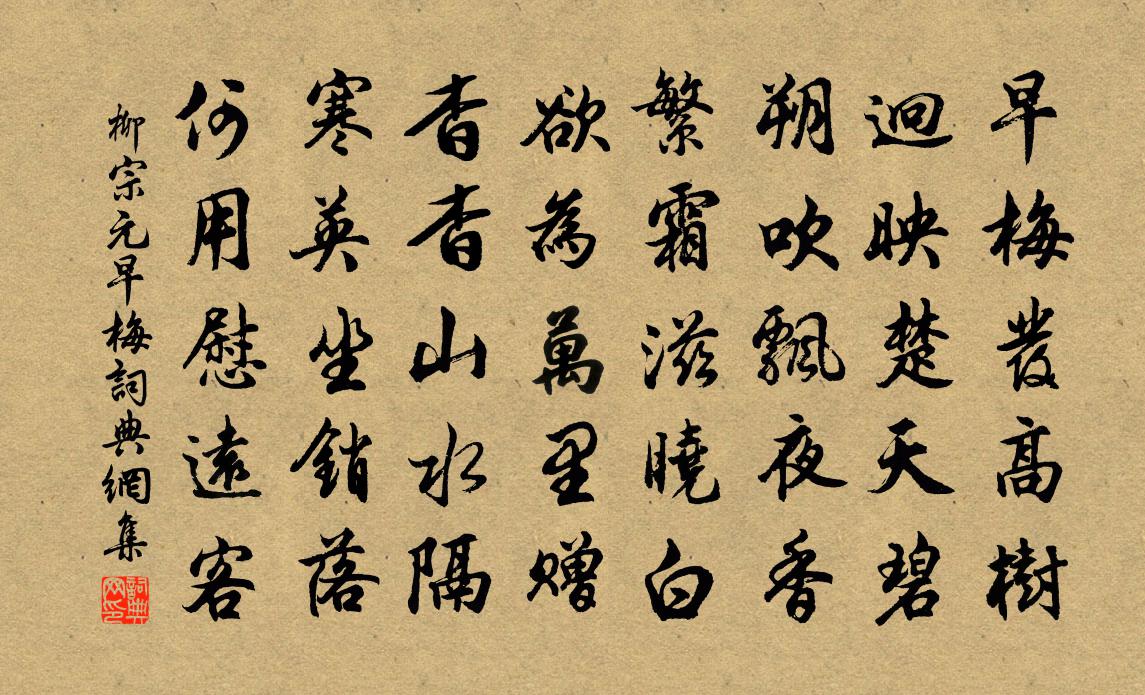 早梅發高樹
迥映楚天碧
朔吹飄夜香
繁霜滋曉白
欲為萬里贈
杳杳山水隔
寒英坐銷落
何用慰遠客
柳宗元早梅詞典網集
詞典网印